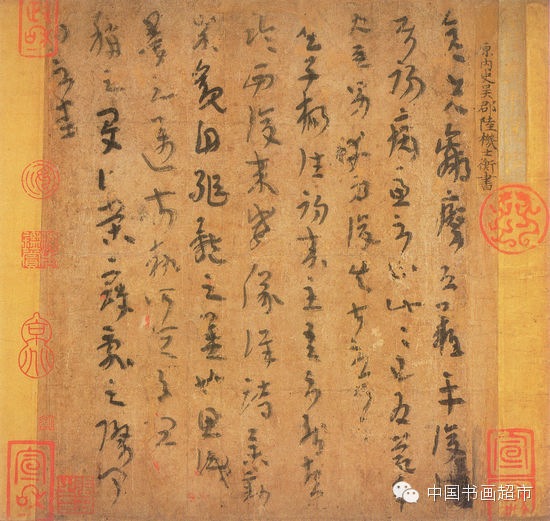 晉內史吳郡陸機士衡書
彦先羸瘵恐難平復往屬
初病慮不止此此已為慶承
使唯男幸為復失前憂耳
吳子楊往初來主吾不能盡
臨西復來威儀詳跱舉動
成觀自軀體之美也思識
量之邁前執所恒有宜
稱之夏伯榮寇亂之際聞
問不悉
宣和
政和
中国书画超市